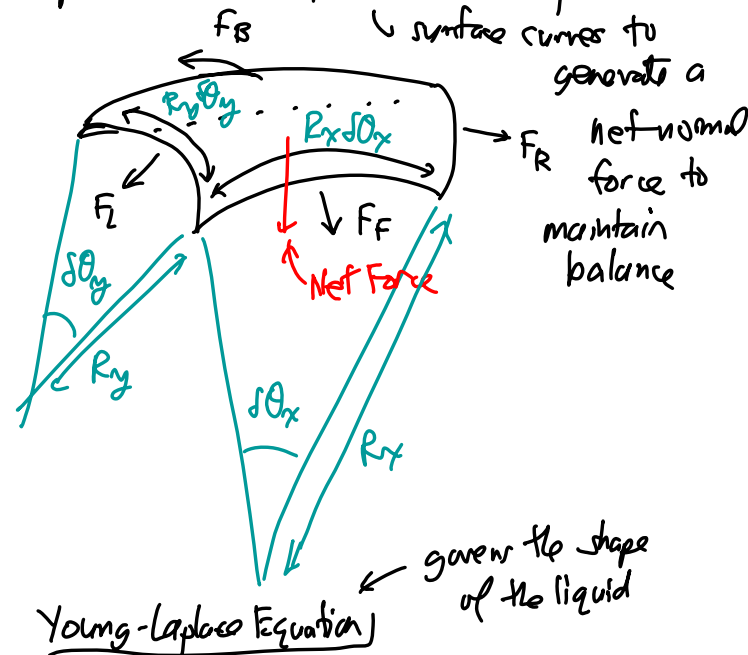 F_B
surface curves to
generate a
net normal
force to
maintain
balance
R_y δθ_y
R_x δθ_x
F_R
F_L
F_F
Net Force
δθ_y
R_y
δθ_x
R_x
governs the shape
of the liquid
Young-Laplace Equation